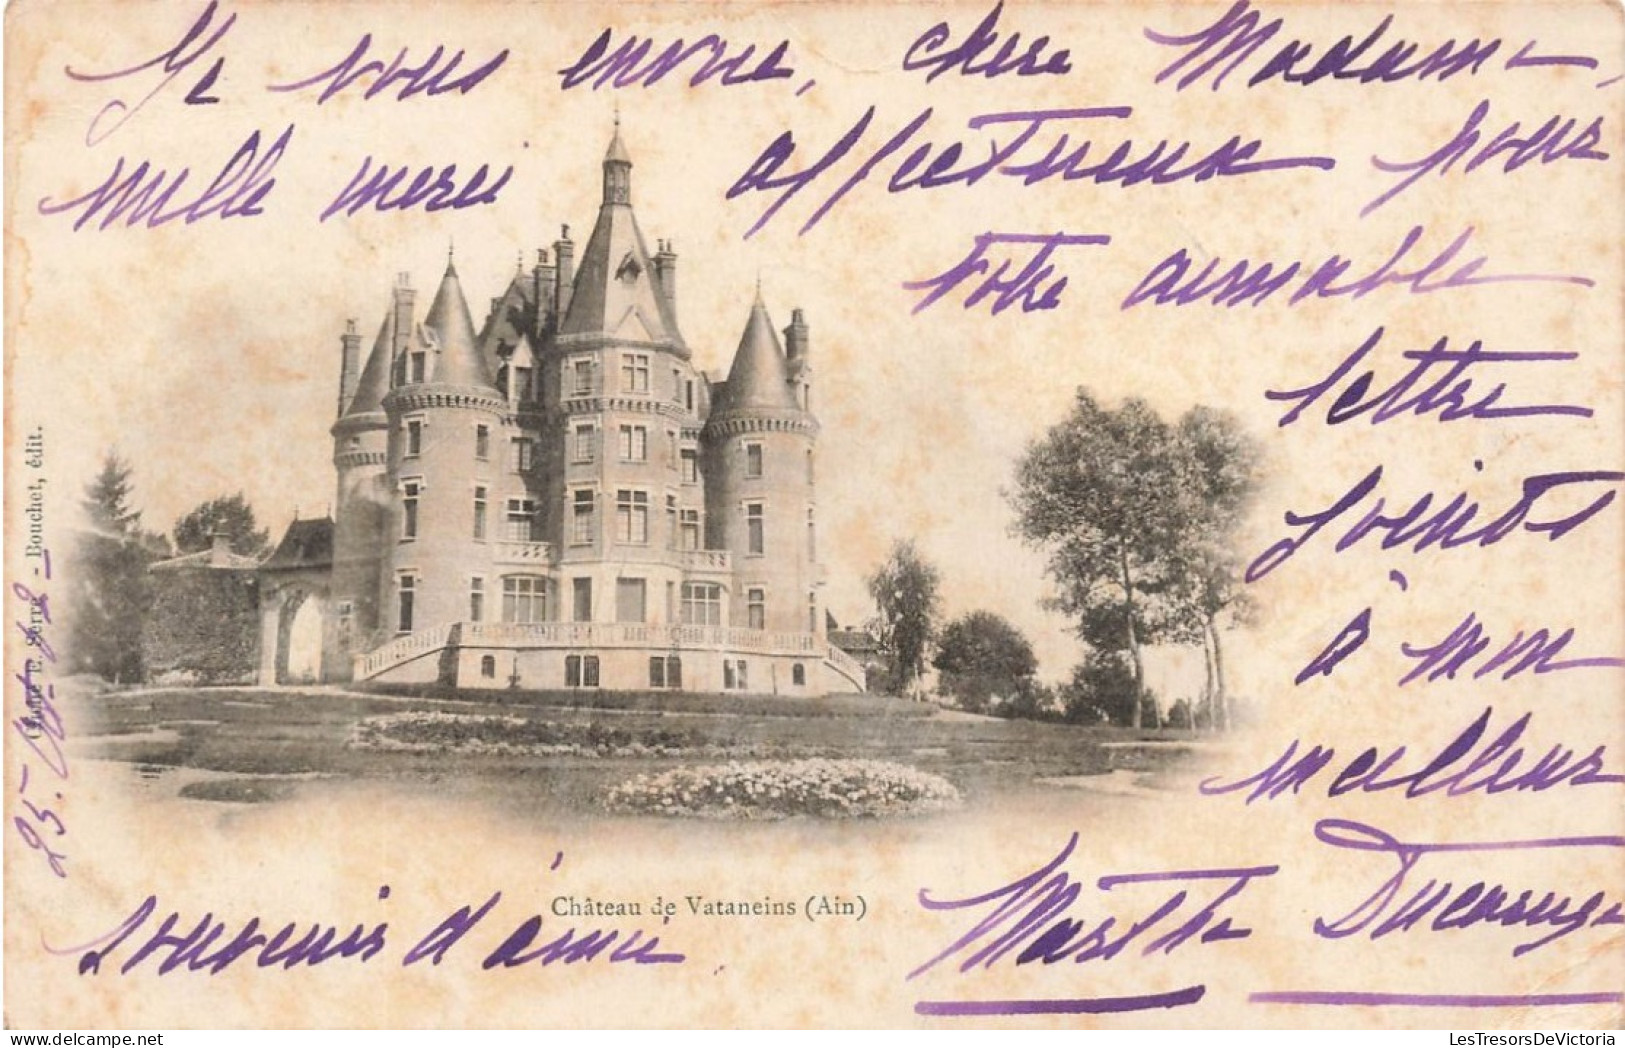 Je vous envoie, chere Madame,
mille merci affectueux pour
votre aimable
lettre
joints
à mon
meilleur
souvenir d'amie
Marthe
Château de Vataneins (Ain)
E. Serre - Bouchet, édit.
25.
LesTresorsDeVictoria